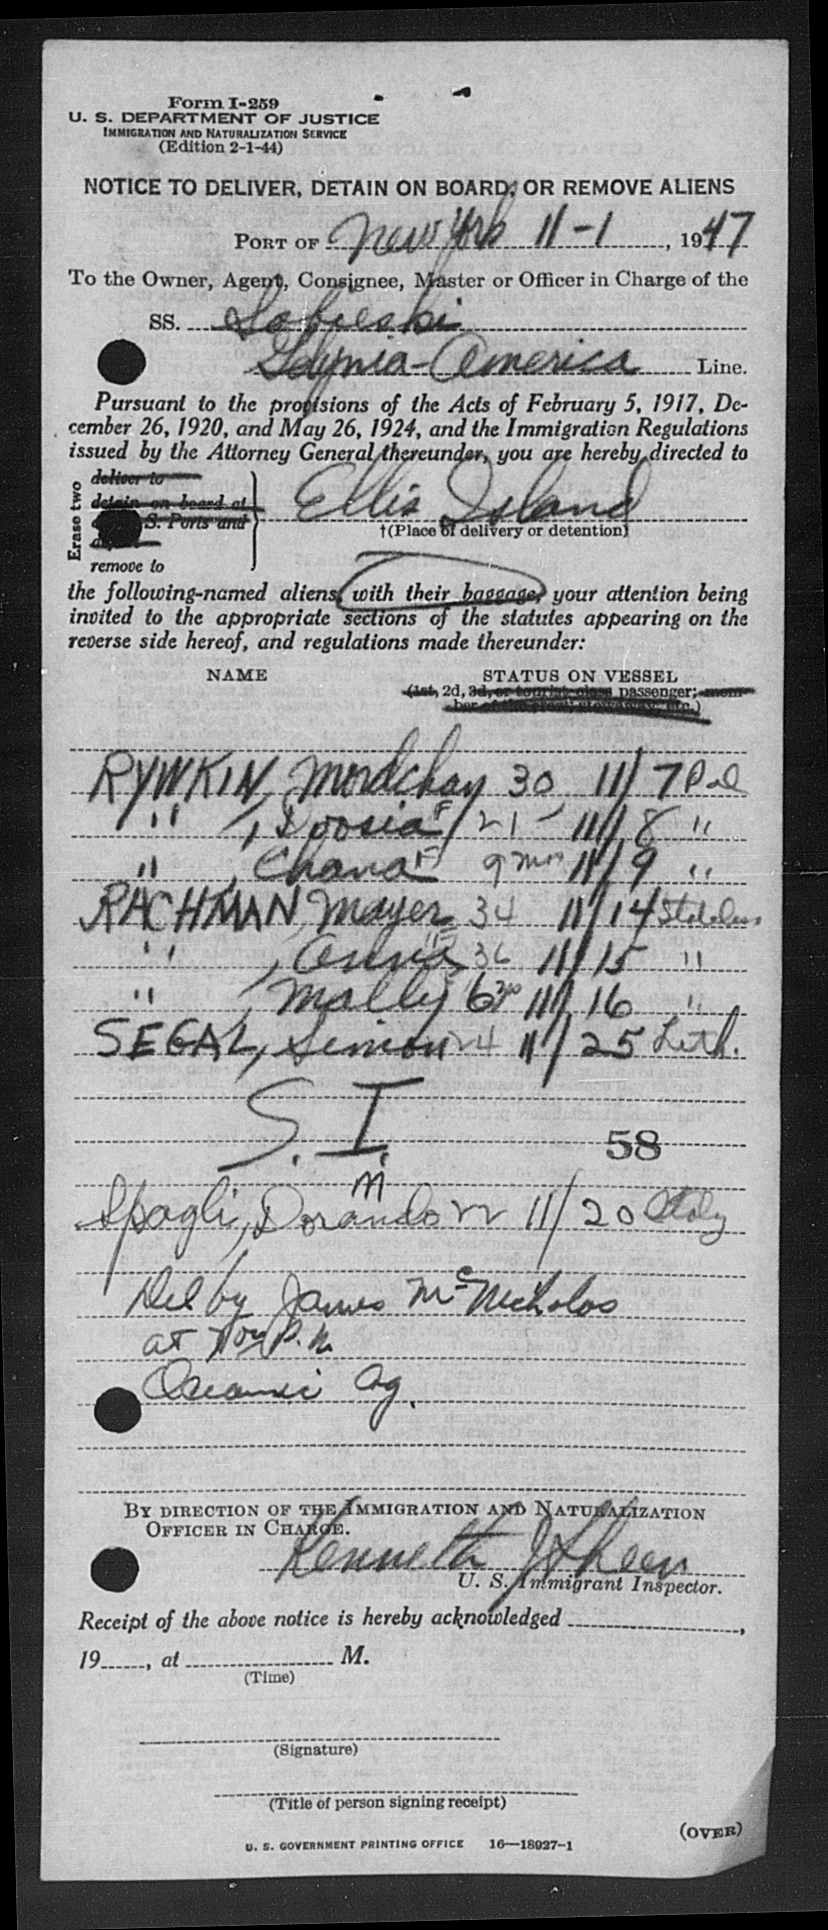 Form I-259
U. S. DEPARTMENT OF JUSTICE
IMMIGRATION AND NATURALIZATION SERVICE
(Edition 2-1-44)
NOTICE TO DELIVER, DETAIN ON BOARD, OR REMOVE ALIENS
PORT OF New York 11-1, 1947
To the Owner, Agent, Consignee, Master or Officer in Charge of the
SS. Sobieski
Gdynia-America Line.
Pursuant to the provisions of the Acts of February 5, 1917, De-
cember 26, 1920, and May 26, 1924, and the Immigration Regulations
issued by the Attorney General thereunder, you are hereby directed to
Erase two
deliver to
detain on board at
S. Ports and
remove to
Ellis Island
†(Place of delivery or detention)
the following-named aliens, with their baggage, your attention being
invited to the appropriate sections of the statutes appearing on the
reverse side hereof, and regulations made thereunder:
NAME STATUS ON VESSEL
(1st, 2d, 3d, or tourist-class passenger; mem-
ber of the crew, stowaway, etc.)
RYWKIN, Mordchay 30 11/7 Pal
" , Doosia F 21 11/8 "
" , Chana F 9 mos 11/9 "
RACHMAN, Mayer 34 11/14 Stateless
" , Anna F 36 11/15 "
" , Mally 6 11/16 "
SEGAL, Simon 24 11/25 Lith.
S. I.
58
Spagli, Dorando M 22 11/20 Italy
Del by James McNicholas
at P.M.
Oceanic Ag.
BY DIRECTION OF THE IMMIGRATION AND NATURALIZATION
OFFICER IN CHARGE.
Kenneth J Sheer
U. S. Immigrant Inspector.
Receipt of the above notice is hereby acknowledged ,
19 , at M.
(Time)
(Signature)
(Title of person signing receipt)
(OVER)
U. S. GOVERNMENT PRINTING OFFICE 16—18927-1